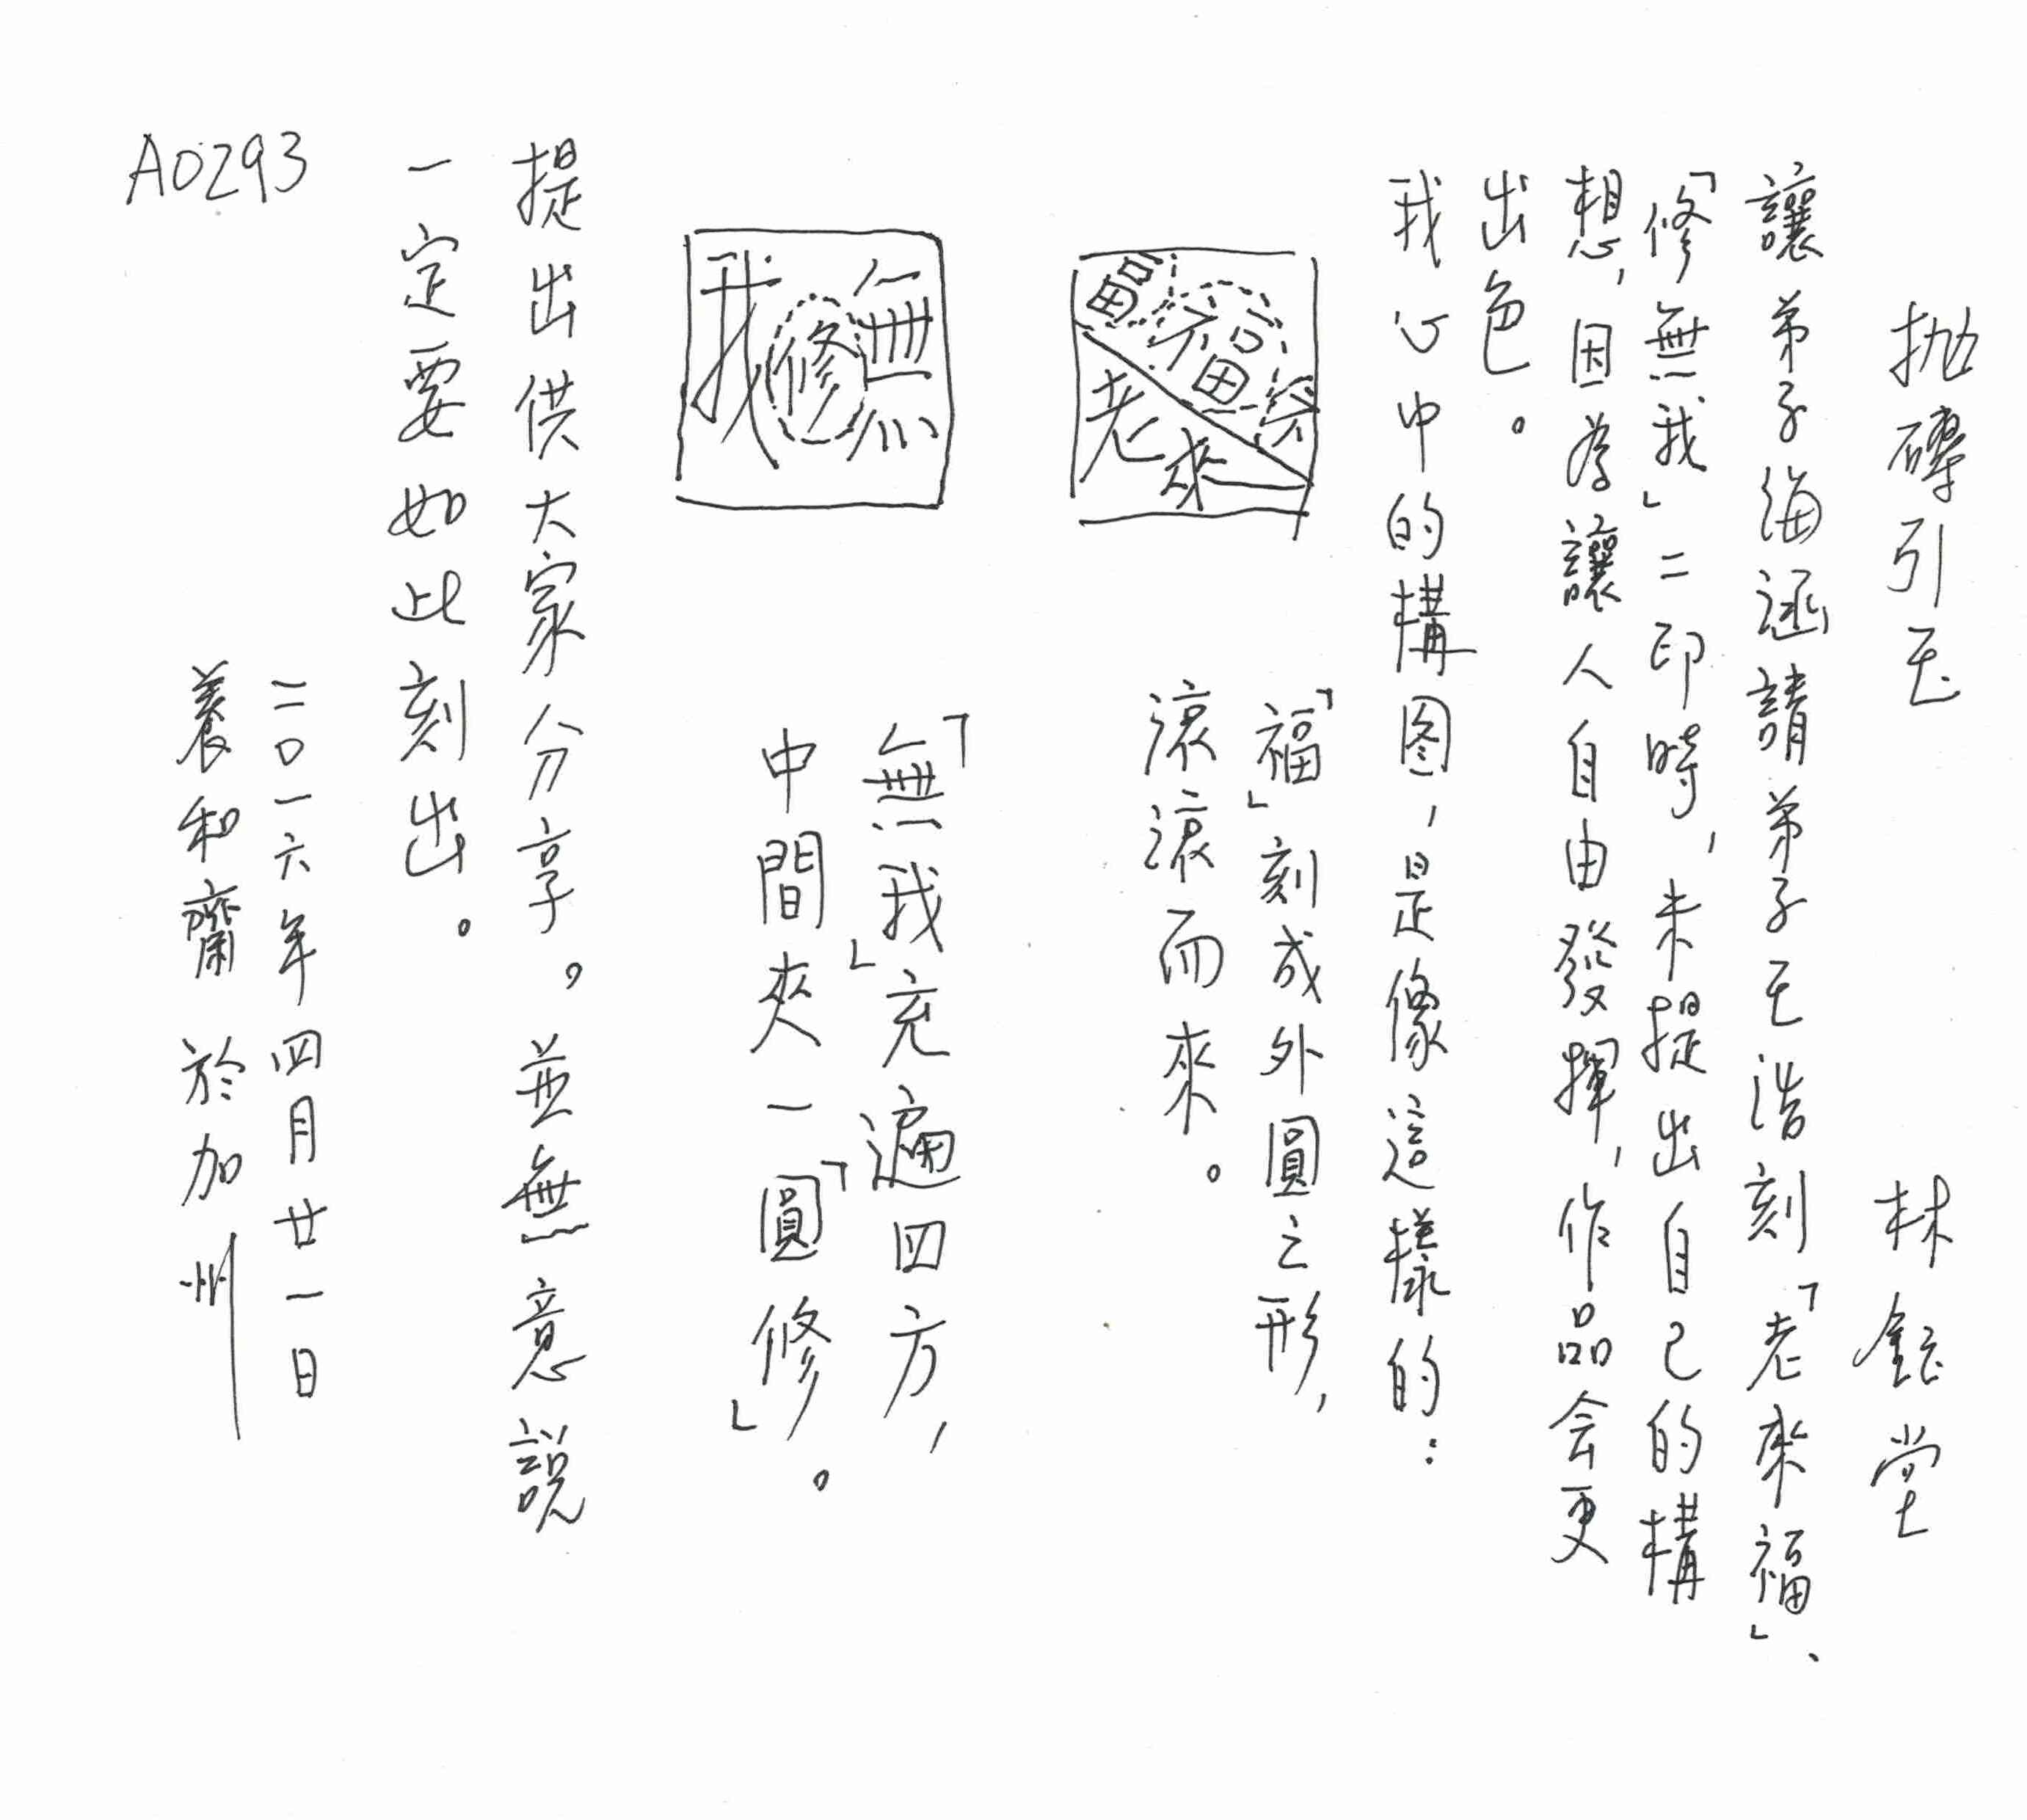 拋磚引玉　　　林鈺堂
讓弟子海涵請弟子玉浩刻「老來福」、
「修無我」二印時，未提出自己的構
想，因為讓人自由發揮，作品会更
出色。
我心中的構图，是像這樣的：
畐福福
老來
「福」刻成外圓之形，
滾滾而來。
無修我
「無我」充遍四方，
中間夾一「圓修」。
提出供大家分享。並無意說
一定要如此刻出。
二〇一六年四月廿一日
養和齋　於加州
A0293